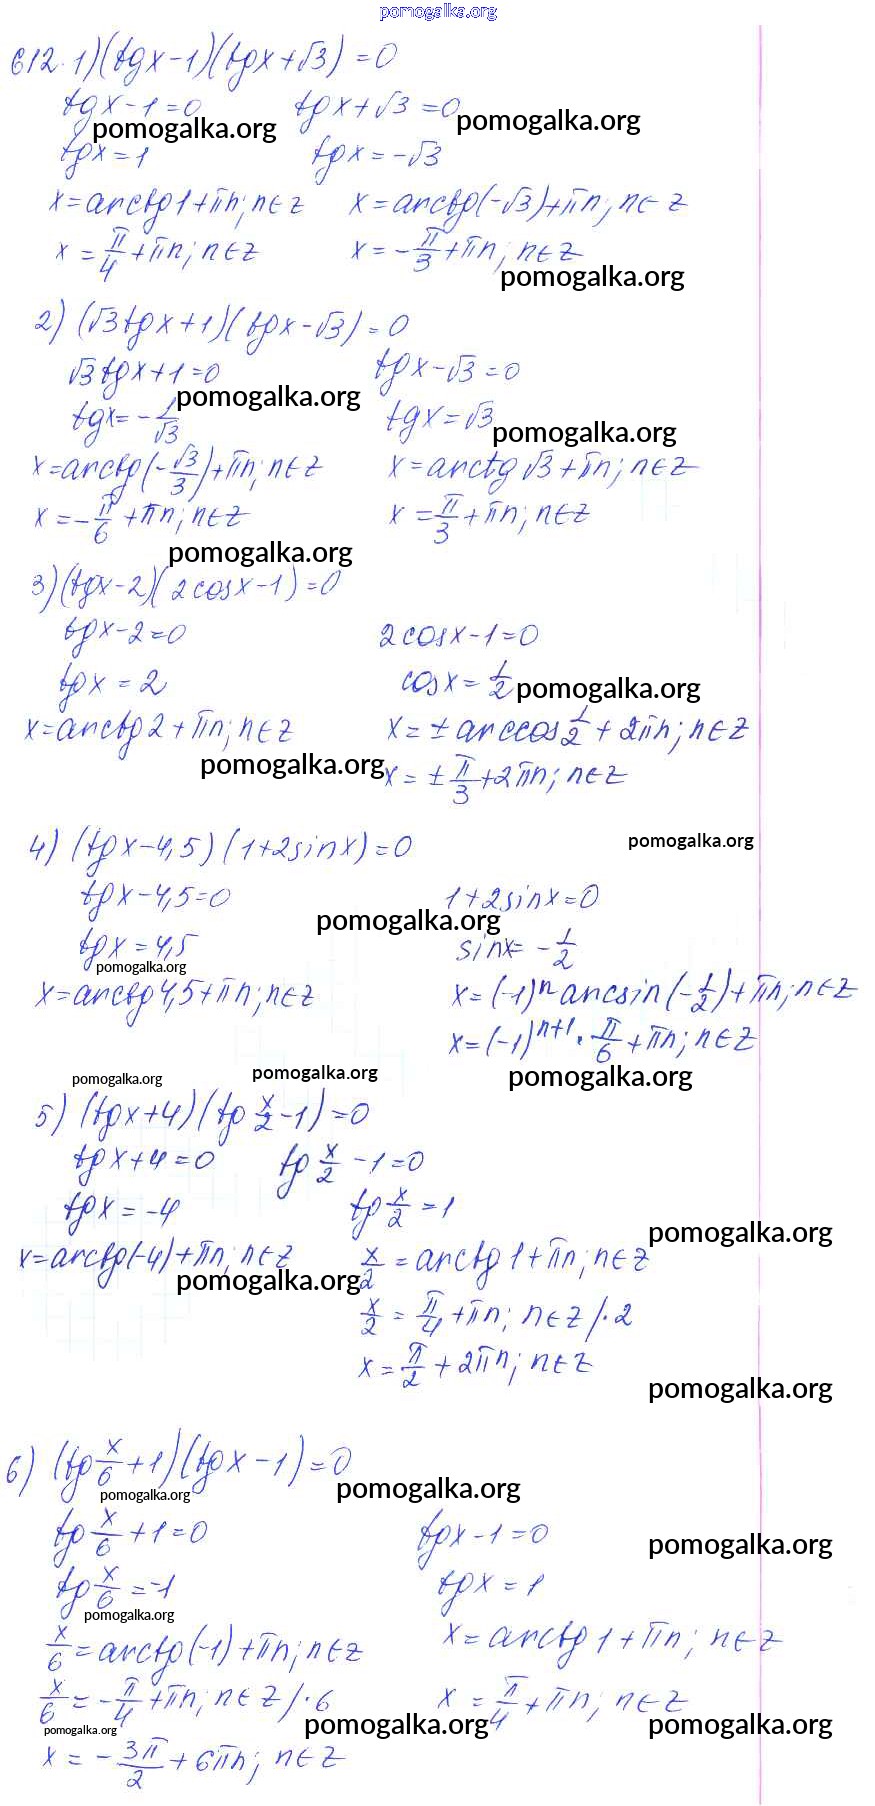 pomogalka.org
612. 1) (tgx-1)(tgx+√3)=0
tgx-1=0 tgx+√3=0
pomogalka.org pomogalka.org
tgx=1 tgx=-√3
x=arctg1+πn; n∈Z x=arctg(-√3)+πn; n∈Z
x=π/4+πn; n∈Z x=-π/3+πn; n∈Z
pomogalka.org
2) (√3tgx+1)(tgx-√3)=0
√3tgx+1=0 tgx-√3=0
pomogalka.org
tgx=-1/√3 tgx=√3
pomogalka.org
x=arctg(-√3/3)+πn; n∈Z x=arctg√3+πn; n∈Z
x=-π/6+πn; n∈Z x=π/3+πn; n∈Z
pomogalka.org
3) (tgx-2)(2cosx-1)=0
tgx-2=0 2cosx-1=0
tgx=2 cosx=1/2 pomogalka.org
x=arctg2+πn; n∈Z x=±arccos1/2+2πn; n∈Z
pomogalka.org x=±π/3+2πn; n∈Z
4) (tgx-4,5)(1+2sinx)=0 pomogalka.org
tgx-4,5=0 1+2sinx=0
pomogalka.org
tgx=4,5 sinx=-1/2
pomogalka.org
x=arctg4,5+πn; n∈Z x=(-1)ⁿarcsin(-1/2)+πn; n∈Z
x=(-1)ⁿ⁺¹·π/6+πn; n∈Z
pomogalka.org pomogalka.org pomogalka.org
5) (tgx+4)(tg x/2-1)=0
tgx+4=0 tg x/2-1=0
tgx=-4 tg x/2=1
pomogalka.org
x=arctg(-4)+πn; n∈Z x/2=arctg1+πn; n∈Z
pomogalka.org
x/2=π/4+πn; n∈Z /·2
x=π/2+2πn; n∈Z
pomogalka.org
6) (tg x/6+1)(tgx-1)=0
pomogalka.org pomogalka.org
tg x/6+1=0 tgx-1=0
pomogalka.org
tg x/6=-1 tgx=1
pomogalka.org
x/6=arctg(-1)+πn; n∈Z x=arctg1+πn; n∈Z
x/6=-π/4+πn; n∈Z /·6 x=π/4+πn; n∈Z
pomogalka.org pomogalka.org pomogalka.org
x=-3π/2+6πn; n∈Z